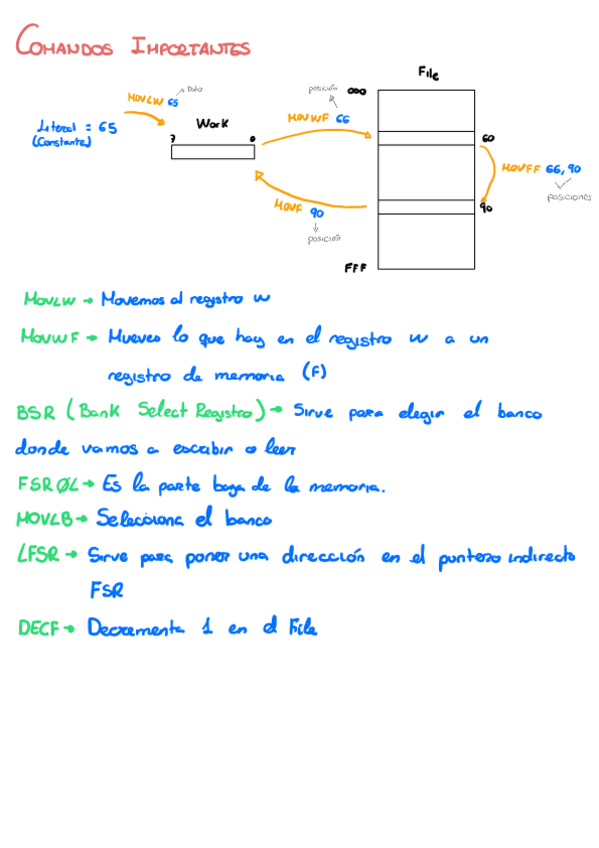 COMANDOS IMPORTANTES
File
MOVLW 65
Dato
posición
000
Literal = 65
(Constante)
Work
MOVWF 66
7
0
60
MOVFF 66, 90
posiciones
MOVF 90
90
posición
FFF
MOVLW → Movemos al registro W
MOVWF → Mueves lo que hay en el registro W a un
registro de memoria (F)
BSR (Bank Select Registro) → Sirve para elegir el banco
donde vamos a escribir o leer
FSRØL → Es la parte baja de la memoria.
MOVLB → Selecciona el banco
LFSR → Sirve para poner una dirección en el puntero indirecto
FSR
DECF → Decrementa 1 en el File